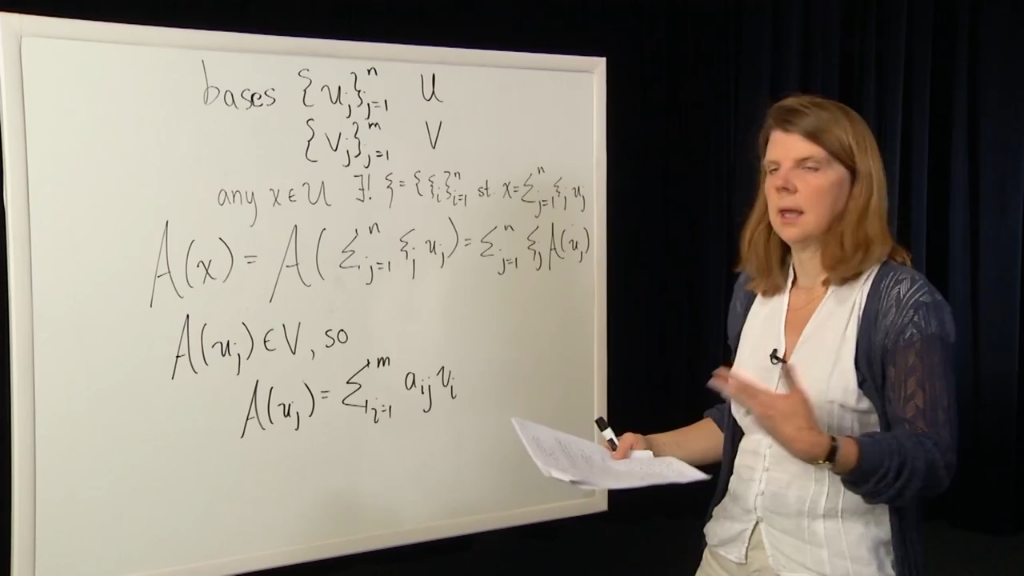 bases {u_j}_{j=1}^n U
{v_j}_{j=1}^m V
any x ∈ U ∃! ξ = {ξ_i}_{i=1}^n st x = Σ_{j=1}^n ξ_j u_j
A(x) = A(Σ_{j=1}^n ξ_j u_j) = Σ_{j=1}^n ξ_j A(u_j)
A(u_j) ∈ V, so
A(u_j) = Σ_{i=1}^m a_{ij} v_i